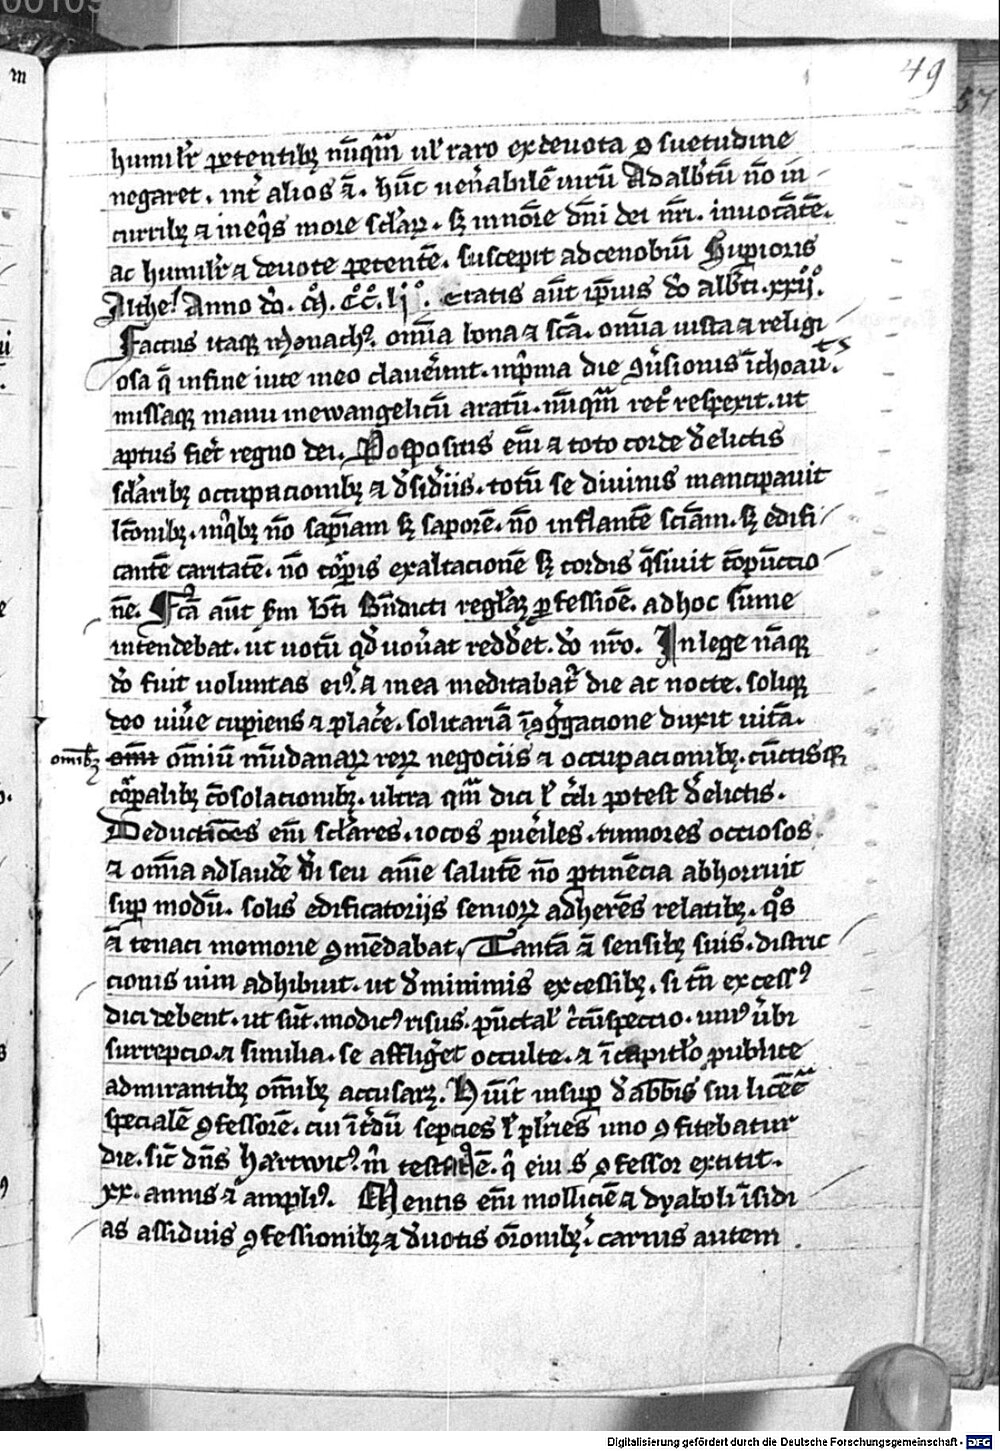 49
57
humilr̄ petentibꝫ nūqm̄ ul̄ raro ex deuota ꝯsuetudine
negaret. int̄ alios ā. hūc uen̄abilē uirū Adalb̄tū nō in
curribꝫ ⁊ in eq̄s more scl̄aꝝ. sꝫ in nōīe dn̄i dei nr̄i. inuocātē.
ac humilr̄ ⁊ deuote petentē. suscepit ad cenobiū Suꝑioris
Althe. Anno dō. ⁊ M̊. C̊C̊. lj̊. etatis aūt ip̄ius dō alb̄ti. xxij̊.
Factus itaqꝫ monachꝰ. om̄ia bona ⁊ sc̄a. om̄ia iusta ⁊ religi
osa q̄ in fine iute meo claueīnt. in p̄ma die ꝯūsionis īchoauͭ.
missaqꝫ manu in ewangelicū aratū. nūqm̄ ret̄o respexit. ut
aptus fiet̄ regno dei. Pospositis em̄ ⁊ toto corde d̄elictis
scl̄aribꝫ occupacionibꝫ ⁊ d̄sid̄iis. totū se diuinis mancipauit
lc̄onibꝫ. in q̄bꝫ nō sapīam sꝫ saporē. nō inflantē scīam. sꝫ edifi
cantē caritatē. nō coꝛꝑis exaltacionē sꝫ cordis q̄siuit cōpūccio
nē. Fc̄a aūt sm̄ bt̄i Bn̄dicti reglaꝫ ꝓfessiōē. ad hoc sūme
intendebat. ut uotū qd̄ uouāt redd̄et. dō nr̄o. In lege nāqꝫ
dō fuit uoluntas eiꝰ. ⁊ in ea meditabat̄ die ac nocte. soliqꝫ
deo uiūe cupiens ⁊ plac̄e. solitariā ī ꝯḡgacione duxit uitā.
omībꝫ om̄i om̄iū mūdanaꝝ reꝝ negociis ⁊ occupacionibꝫ. cūctisqꝫ
coꝛꝑalibꝫ cōsolacionibꝫ. ultra qm̄ dici ł c̄di potest d̄elictis.
Deductiōes em̄ scl̄ares. iocos pueīles. rumores occiosos
⁊ om̄ia ad laudē d̄i seu anīe salutē nō ꝑtinēcia abhorruit
suꝑ modū. solis edificatorijs senioꝝ adherēs relatibꝫ. q̊s
ā tenaci momorie ꝯmēdabat. Tantā ā sensibꝫ suis. distric
cionis uim adhibuit. ut d̄ minimis excessibꝫ. si tn̄ excessꝰ
dici debent. ut sūt. modicꝰ risus. pūctal̄ c̄cūspeccio. uniꝰ ūbi
surrepcio. ⁊ similia. se affliḡet occulte. ⁊ ī capitlo publice
admirantibꝫ om̄ibꝫ accusarꝫ. H̄uīt insuꝑ d̄ abb̄is sui licēc̄
specialē ꝯfessorē. cui īt̄dū sepcies ł pl̄ries uno ꝯfitebatur
die. sīc dn̄s Hartwicꝰ. m̄ testatꝰ ē. q̄ eius ꝯfessor extitit.
xx. annis ⁊ ampliꝰ. Mentis em̄ molliciē ⁊ dyaboli īsidi
as assiduis ꝯfessionibꝫ ⁊ d̄uotis or̄onibꝫ. carnis autem
Digitalisierung gefördert durch die Deutsche Forschungsgemeinschaft - DFG